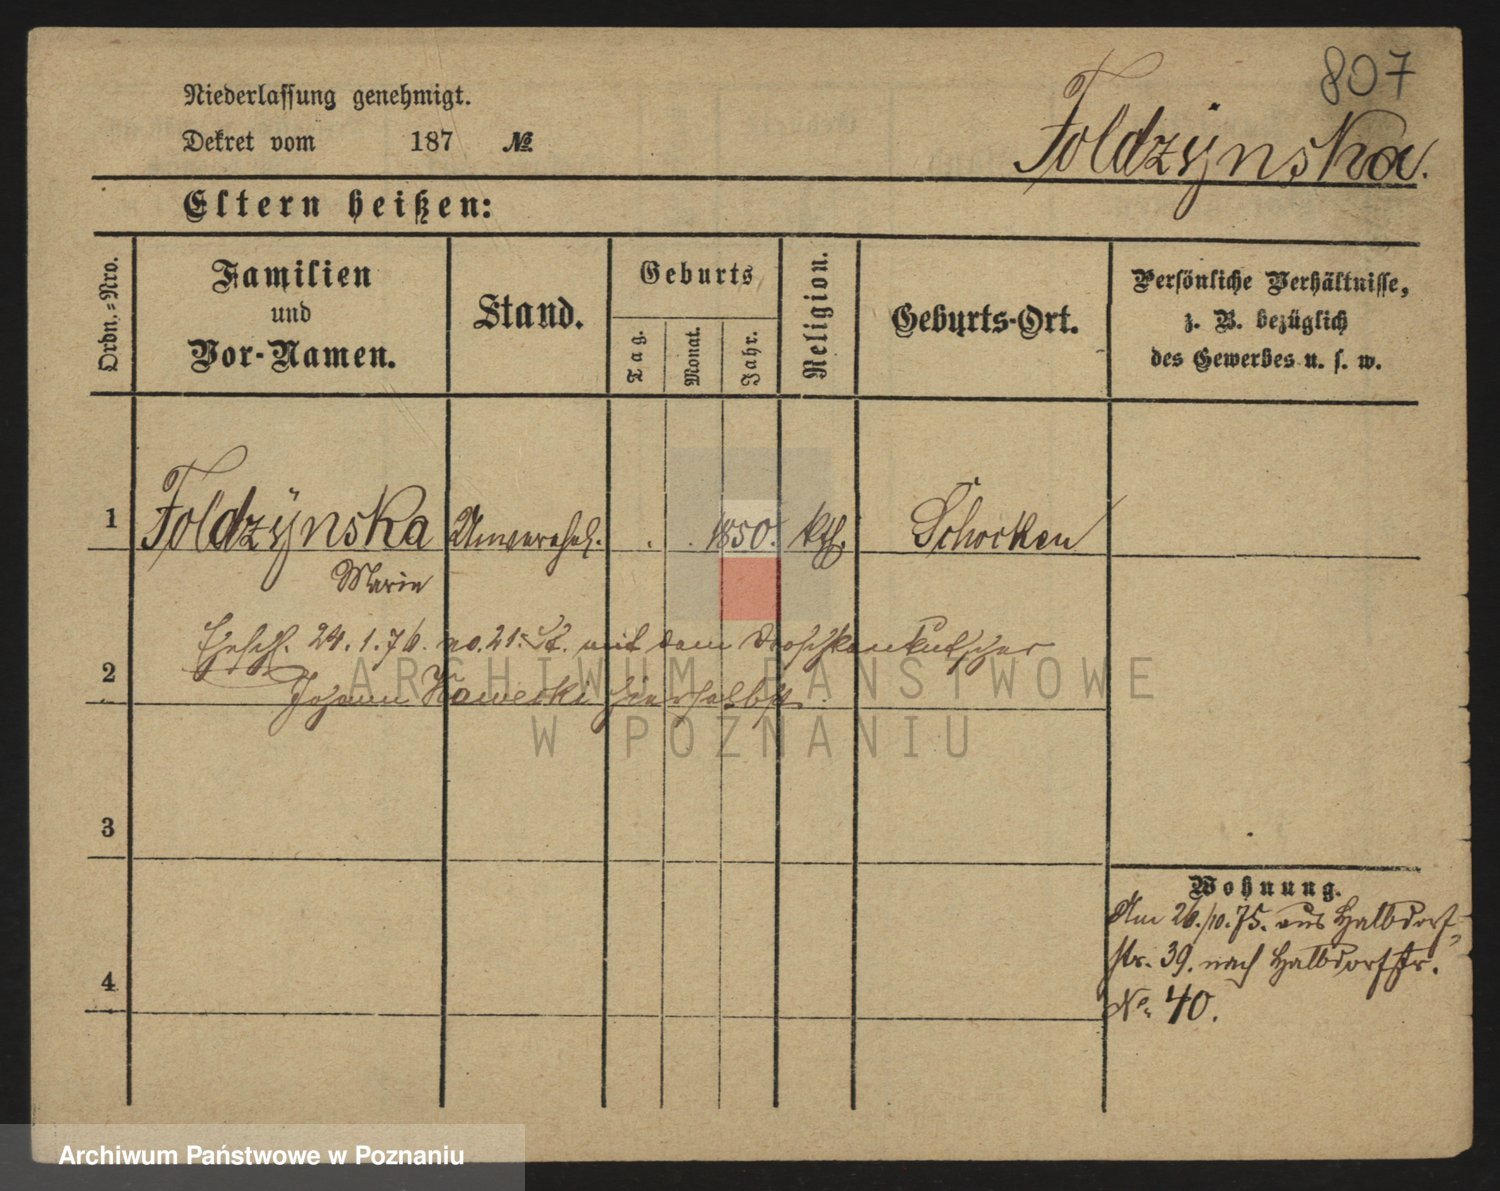 807
Niederlassung genehmigt.
Dekret vom 187 №
Foldzynska.
Eltern heißen:
Ordn.-Nro.
Familien
und
Vor-Namen.
Stand.
Geburts
Tag.
Monat.
Jahr.
Religion.
Geburts-Ort.
Persönliche Verhältnisse,
z. B. bezüglich
des Gewerbes u. s. w.
1 Foldzynska Unverehel. . . 1850. kth. Schocken
Marie
Ehesch. 24.1.76. no. 21. mit dem Droschkenkutscher
2
Johann Kawecki hierselbst.
ARCHIWUM PAŃSTWOWE
W POZNANIU
3
Wohnung.
Am 26./10.75. aus Halbdorf-
str. 39. nach Halbdorfstr.
4
No. 40.
Archiwum Państwowe w Poznaniu